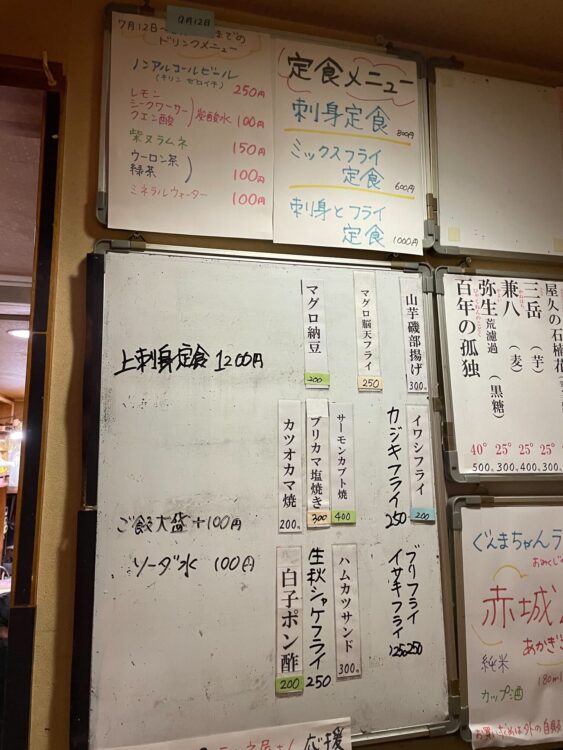 9月12日
7月12日〜
までの
ドリンクメニュー
ノンアルコールビール
(キリン ゼロイチ)
250円
レモン
シークワーサー
クエン酸
炭酸水 100円
ラムネ 150円
ウーロン茶
緑茶
100円
ミネラルウォーター 100円
定食メニュー
刺身定食 800円
ミックスフライ
定食 600円
刺身とフライ
定食 1000円
山芋磯部揚げ 300
マグロ脳天フライ 250
マグロ納豆 200
上刺身定食 1200円
イワシフライ 200
カジキフライ 250
サーモンカブト焼 400
ブリカマ塩焼き 300
カツオカマ焼 200
ご飯大盛 +100円
ソーダ水 100円
ブリフライ 250
イサキフライ
ハムカツサンド 300
生秋シャケフライ 250
白子ポン酢 200
屋久の石楠花
三岳(芋)
兼八(麦)
弥生荒濾過(黒糖)
百年の孤独
40° 25° 25° 25°
500. 300. 400. 300.
ぐんまちゃん
赤城
あかぎ
純米
180ml
カップ酒
お買い求めは外の自販
応援